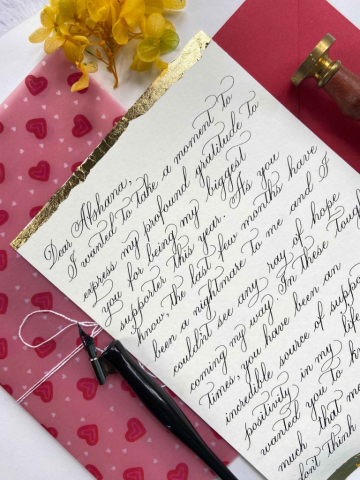 Dear Afshana,
I wanted to take a moment to
express my profound gratitude to
you for being my biggest
supporter this year. As you
know, the last few months have
been a nightmare to me and I
couldn't see any ray of hope
coming my way. In these tough
times you have been an
incredible source of suppo
positivity in my life
wanted you to
much that m
don't think